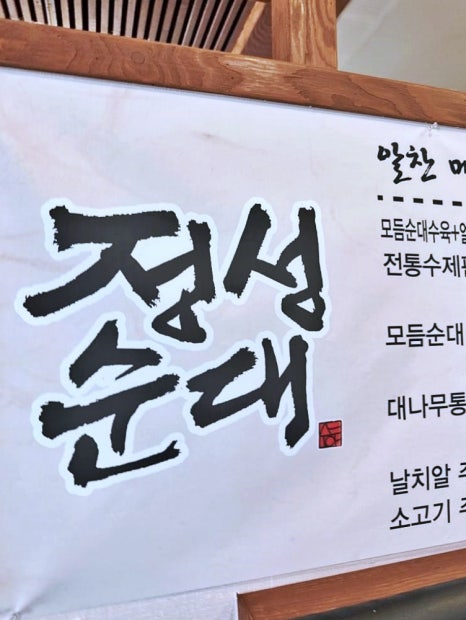 정성
순대
알찬
모듬순대수육+
전통수제
모듬순대
대나무통
날치알
소고기